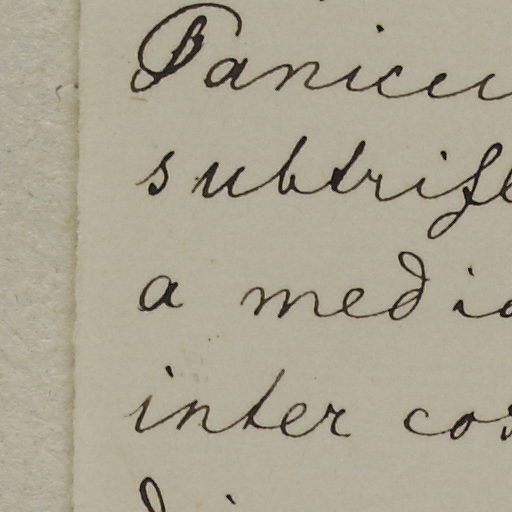 Panicu
subtrifl
a media
inter co